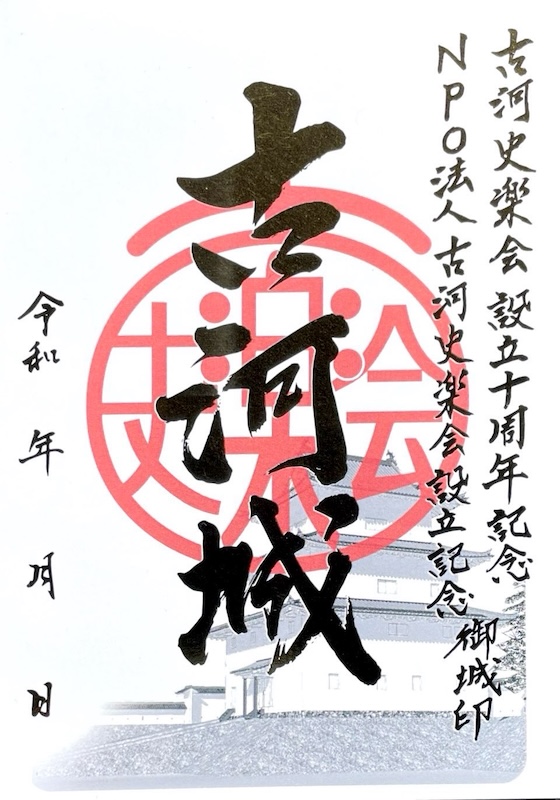 古河史楽会 設立十周年記念
NPO法人古河史楽会設立記念
御城印
古河城
史楽会
令和 年 月 日